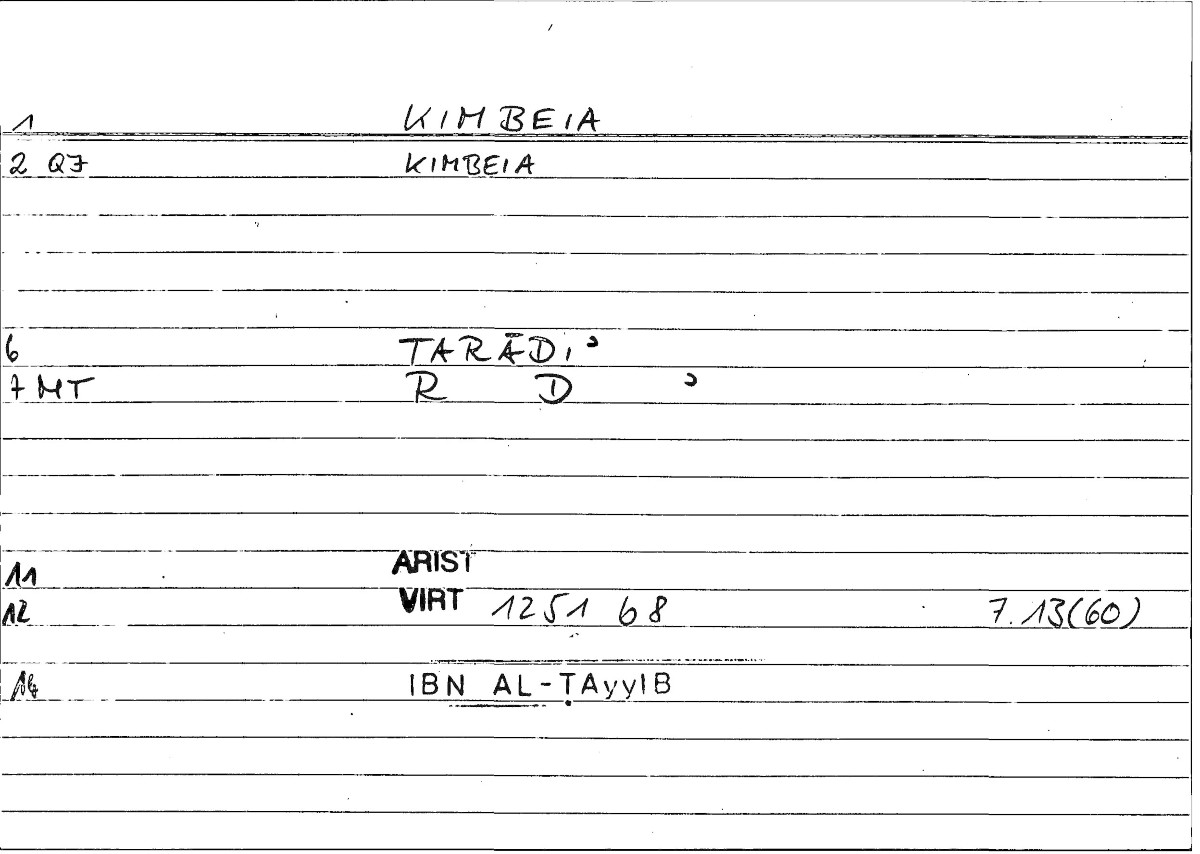 1 KIMBEIA
2 Q7 KIMBEIA
6 TARĀDIʾ
7 MT R D ʾ
11 ARIST
12 VIRT 1251 68 7.13(60)
14 IBN AL-ṬAyyIB